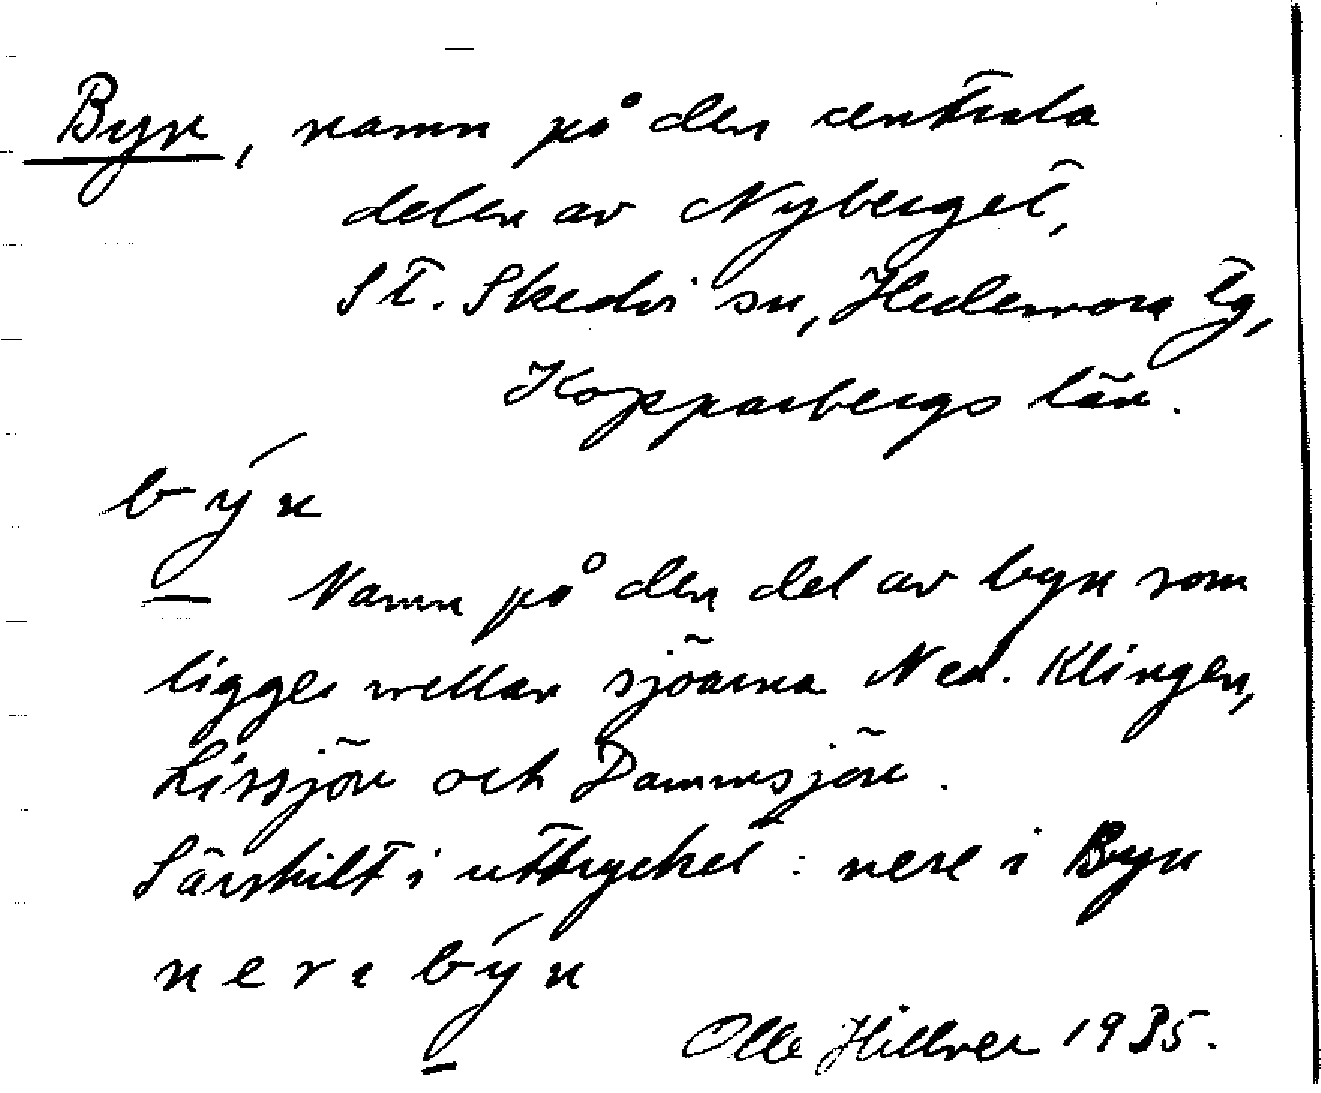 Byn, namn på den centrala
delen av Nyberget,
St. Skedvi sn, Hedemora tg,
Kopparbergs län.
býn
Namn på den del av byn som
ligger mellan sjöarna Ned. Klingen,
Lissjön och Dammsjön.
Särskilt i uttrycket: nere i Byn
neri býn
Olle Hillver 1935.